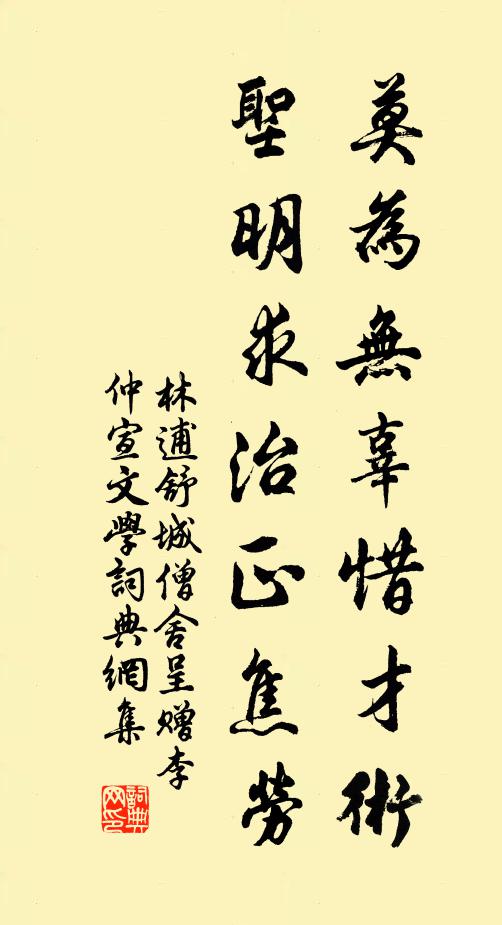 莫為無辜惜才術
聖明求治正焦勞
林逋舒城僧舍呈贈李
仲宣文學詞典網集
詞典網印